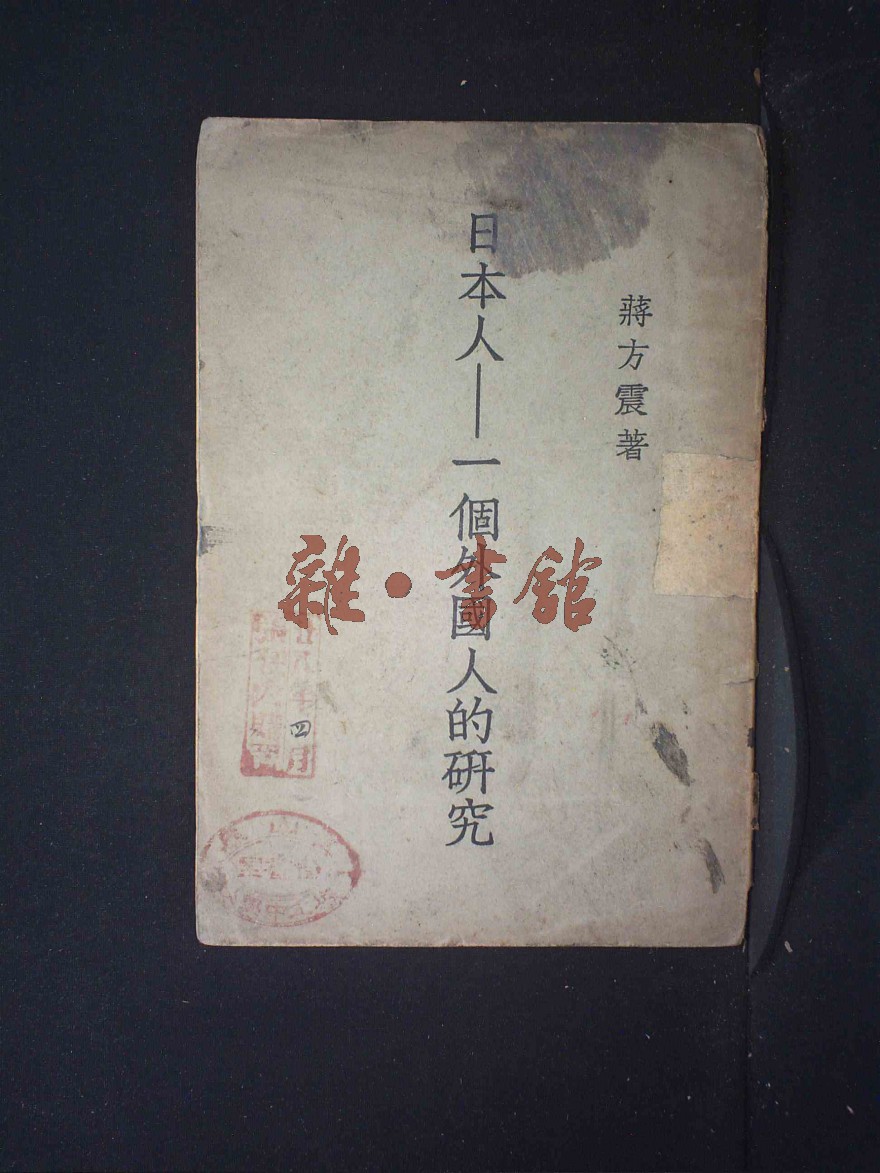 蔣方震著
日本人—一個外國人的研究
雜·書館
四